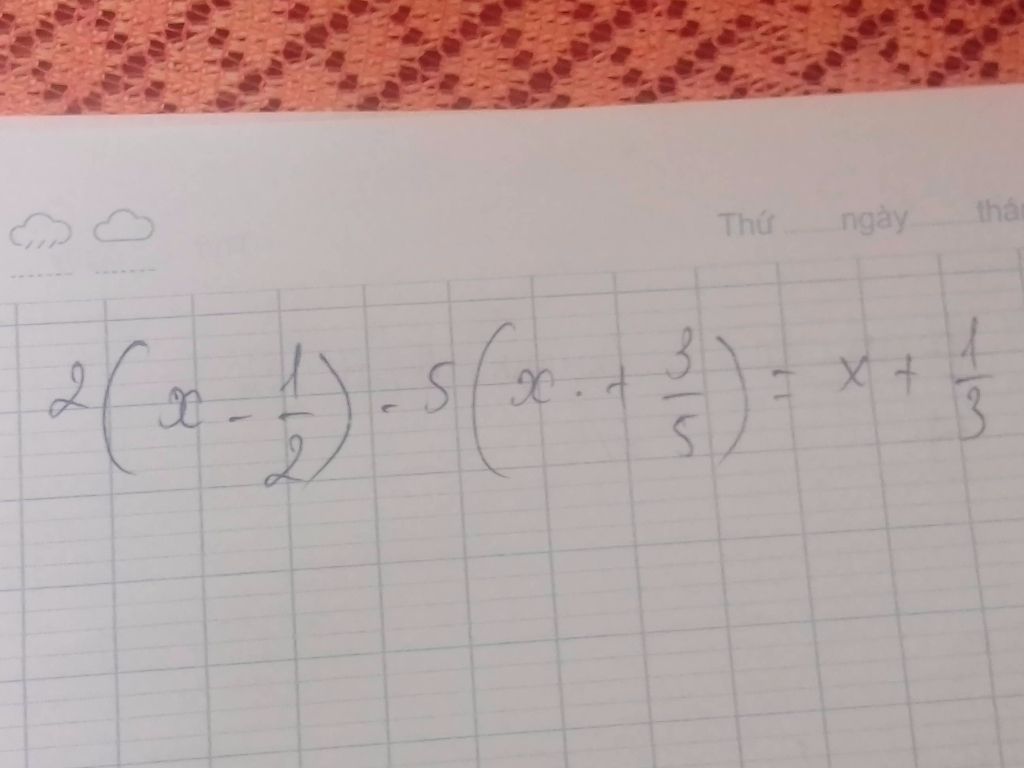 Thứ ngày thán
2(x - 1/2) - 5(x . + 3/5) = x + 1/3